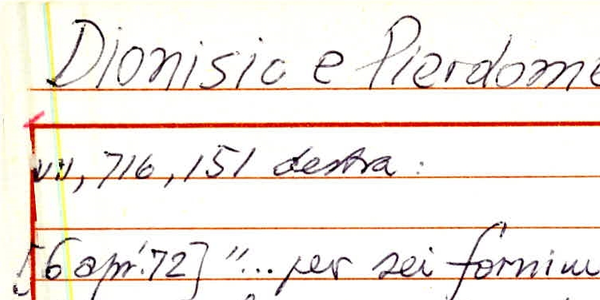 Dionisio e Pierdome
VII, 716, 151 destra:
[6 apr. '72] "... per sei